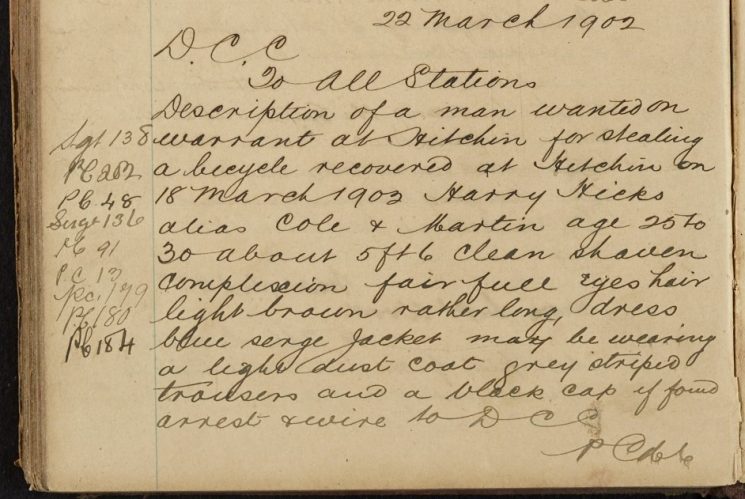 22 March 1902
D. C. C
To All Stations
Description of a man wanted on
warrant at Hitchin for stealing
a bicycle recovered at Hitchin on
18 March 1902 Harry Hicks
alias Cole & Martin age 25 to
30 about 5ft 6 clean shaven
complexion fair full eyes hair
light brown rather long, dress
blue serge Jacket may be wearing
a light dust coat grey striped
trousers and a black cap if found
arrest & wire to D C C
P C
Sgt 138
PC 202
PC 48
Sergt 136
PC 91
PC 13
PC 179
PC 180
PC 184